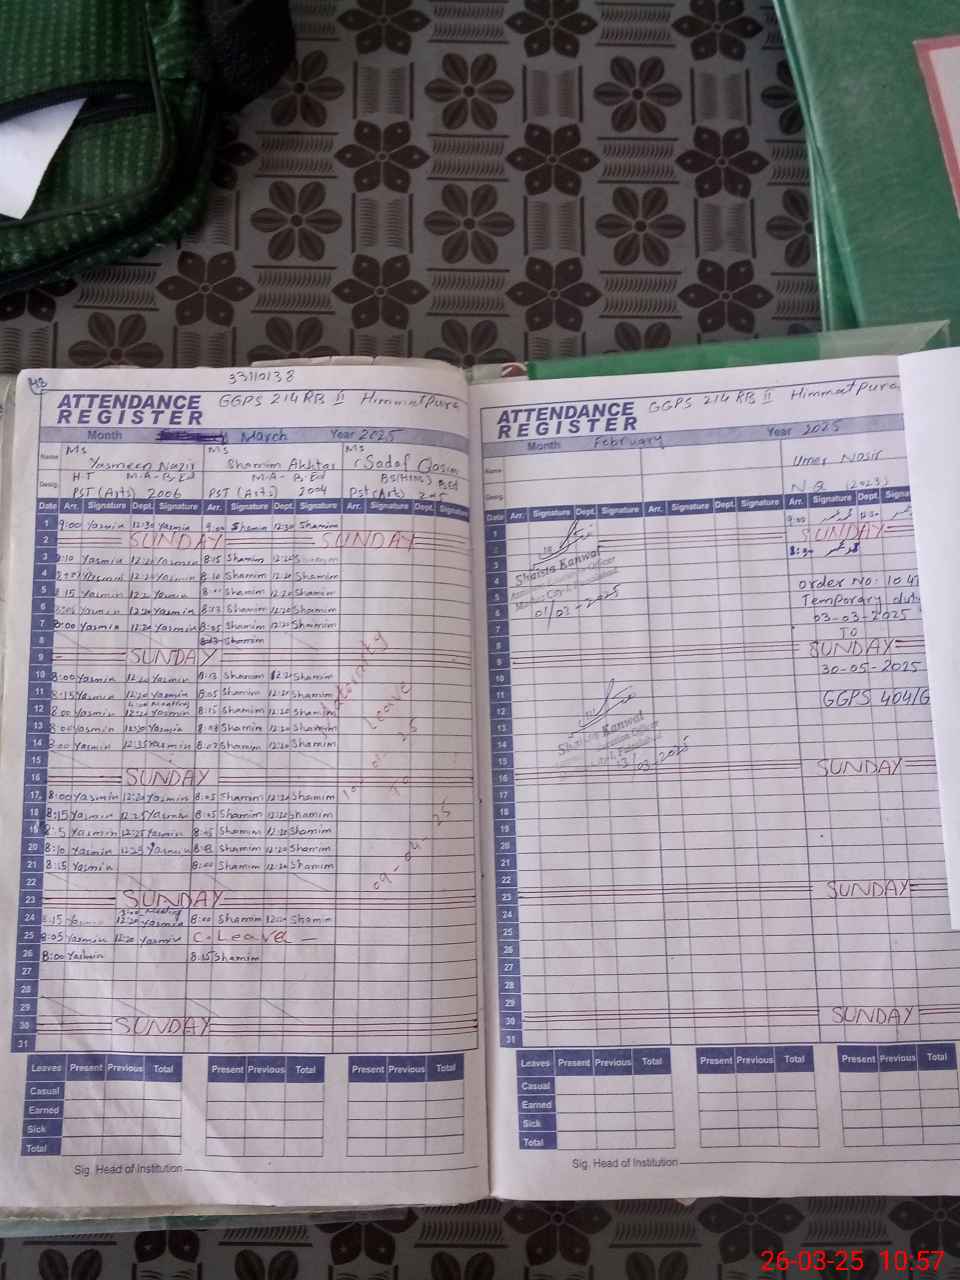 33110138
ATTENDANCE REGISTER GGPS 214 RB II Himmatpura
Month March Year 2025
Name Ms Yasmeen Nazir Ms Shamim Akhtar Ms Sadaf Qasim
Desig. H.T M.A - B.Ed M.A - B.Ed BS(Hons) B.Ed
PST (Arts) 2006 PST (Arts) 2004 Pst (Arts)
Date Arr. Signature Dept. Signature Arr. Signature Dept. Signature Arr. Signature Dept. Signature
1 9:00 Yasmin 12:30 Yasmin 9:00 Shamim 12:30 Shamim
2 SUNDAY SUNDAY
3 8:10 Yasmin 12:20 Yasmin 8:15 Shamim 12:20 Shamim
4 Yasmin 12:20 Yasmin 8:10 Shamim 12:20 Shamim
5 8:15 Yasmin Yasmin Shamim 12:20 Shamim
6 Yasmin 12:20 Yasmin Shamim 12:20 Shamim
7 8:00 Yasmin 12:20 Yasmin 8:05 Shamim 12:20 Shamim
8 Shamim
9 SUNDAY
10 8:00 Yasmin 12:20 Yasmin 8:13 Shamim 12:20 Shamim
11 8:15 Yasmin 12:20 Yasmin 8:05 Shamim 12:20 Shamim
12 8:00 Yasmin 12:20 Yasmin 8:15 Shamim 12:20 Shamim
13 8:00 Yasmin 12:30 Yasmin 8:08 Shamim 12:20 Shamim
14 8:00 Yasmin 12:35 Yasmin 8:07 Shamim 12:20 Shamim
15
16 SUNDAY
17 8:00 Yasmin 12:20 Yasmin 8:05 Shamim 12:20 Shamim
18 8:15 Yasmin 12:25 Yasmin 8:05 Shamim 12:20 Shamim
19 8:5 Yasmin 12:25 Yasmin 8:05 Shamim 12:20 Shamim
20 8:10 Yasmin 12:25 Yasmin Shamim 12:20 Shamim
21 8:15 Yasmin 8:00 Shamim 12:20 Shamim
22
23 SUNDAY
24 8:15 12:20 Yasmin 8:00 Shamim 12:20 Shamim
25 8:05 Yasmin 12:20 Yasmin C. Leave —
26 8:00 Yasmin 8:15 Shamim
27
28
29
30 SUNDAY
31
Leave
TO
09-04-25
Leaves Present Previous Total Present Previous Total Present Previous Total
Casual
Earned
Sick
Total
Sig. Head of Institution
ATTENDANCE REGISTER GGPS 214 RB II Himmatpura
Month February Year 2025
Name Umer Nasir
Desig. N.Q (2023)
Date Arr. Signature Dept. Signature Arr. Signature Dept. Signature Arr. Signature Dept. Signature
1 9:00 12:30
2 SUNDAY
3
Shaista Kanwal
4 order No: 10
5 Temporary duty
01/03-2025
6 03-03-2025
7 TO
8 SUNDAY
9 30-05-2025
10
11 GGPS 404/G
12
13
Shaista Kanwal
14
13/03-2025
15
16 SUNDAY
17
18
19
20
21
22
23 SUNDAY
24
25
26
27
28
29
30 SUNDAY
31
Leaves Present Previous Total Present Previous Total Present Previous Total
Casual
Earned
Sick
Total
Sig. Head of Institution
26-03-25 10:57